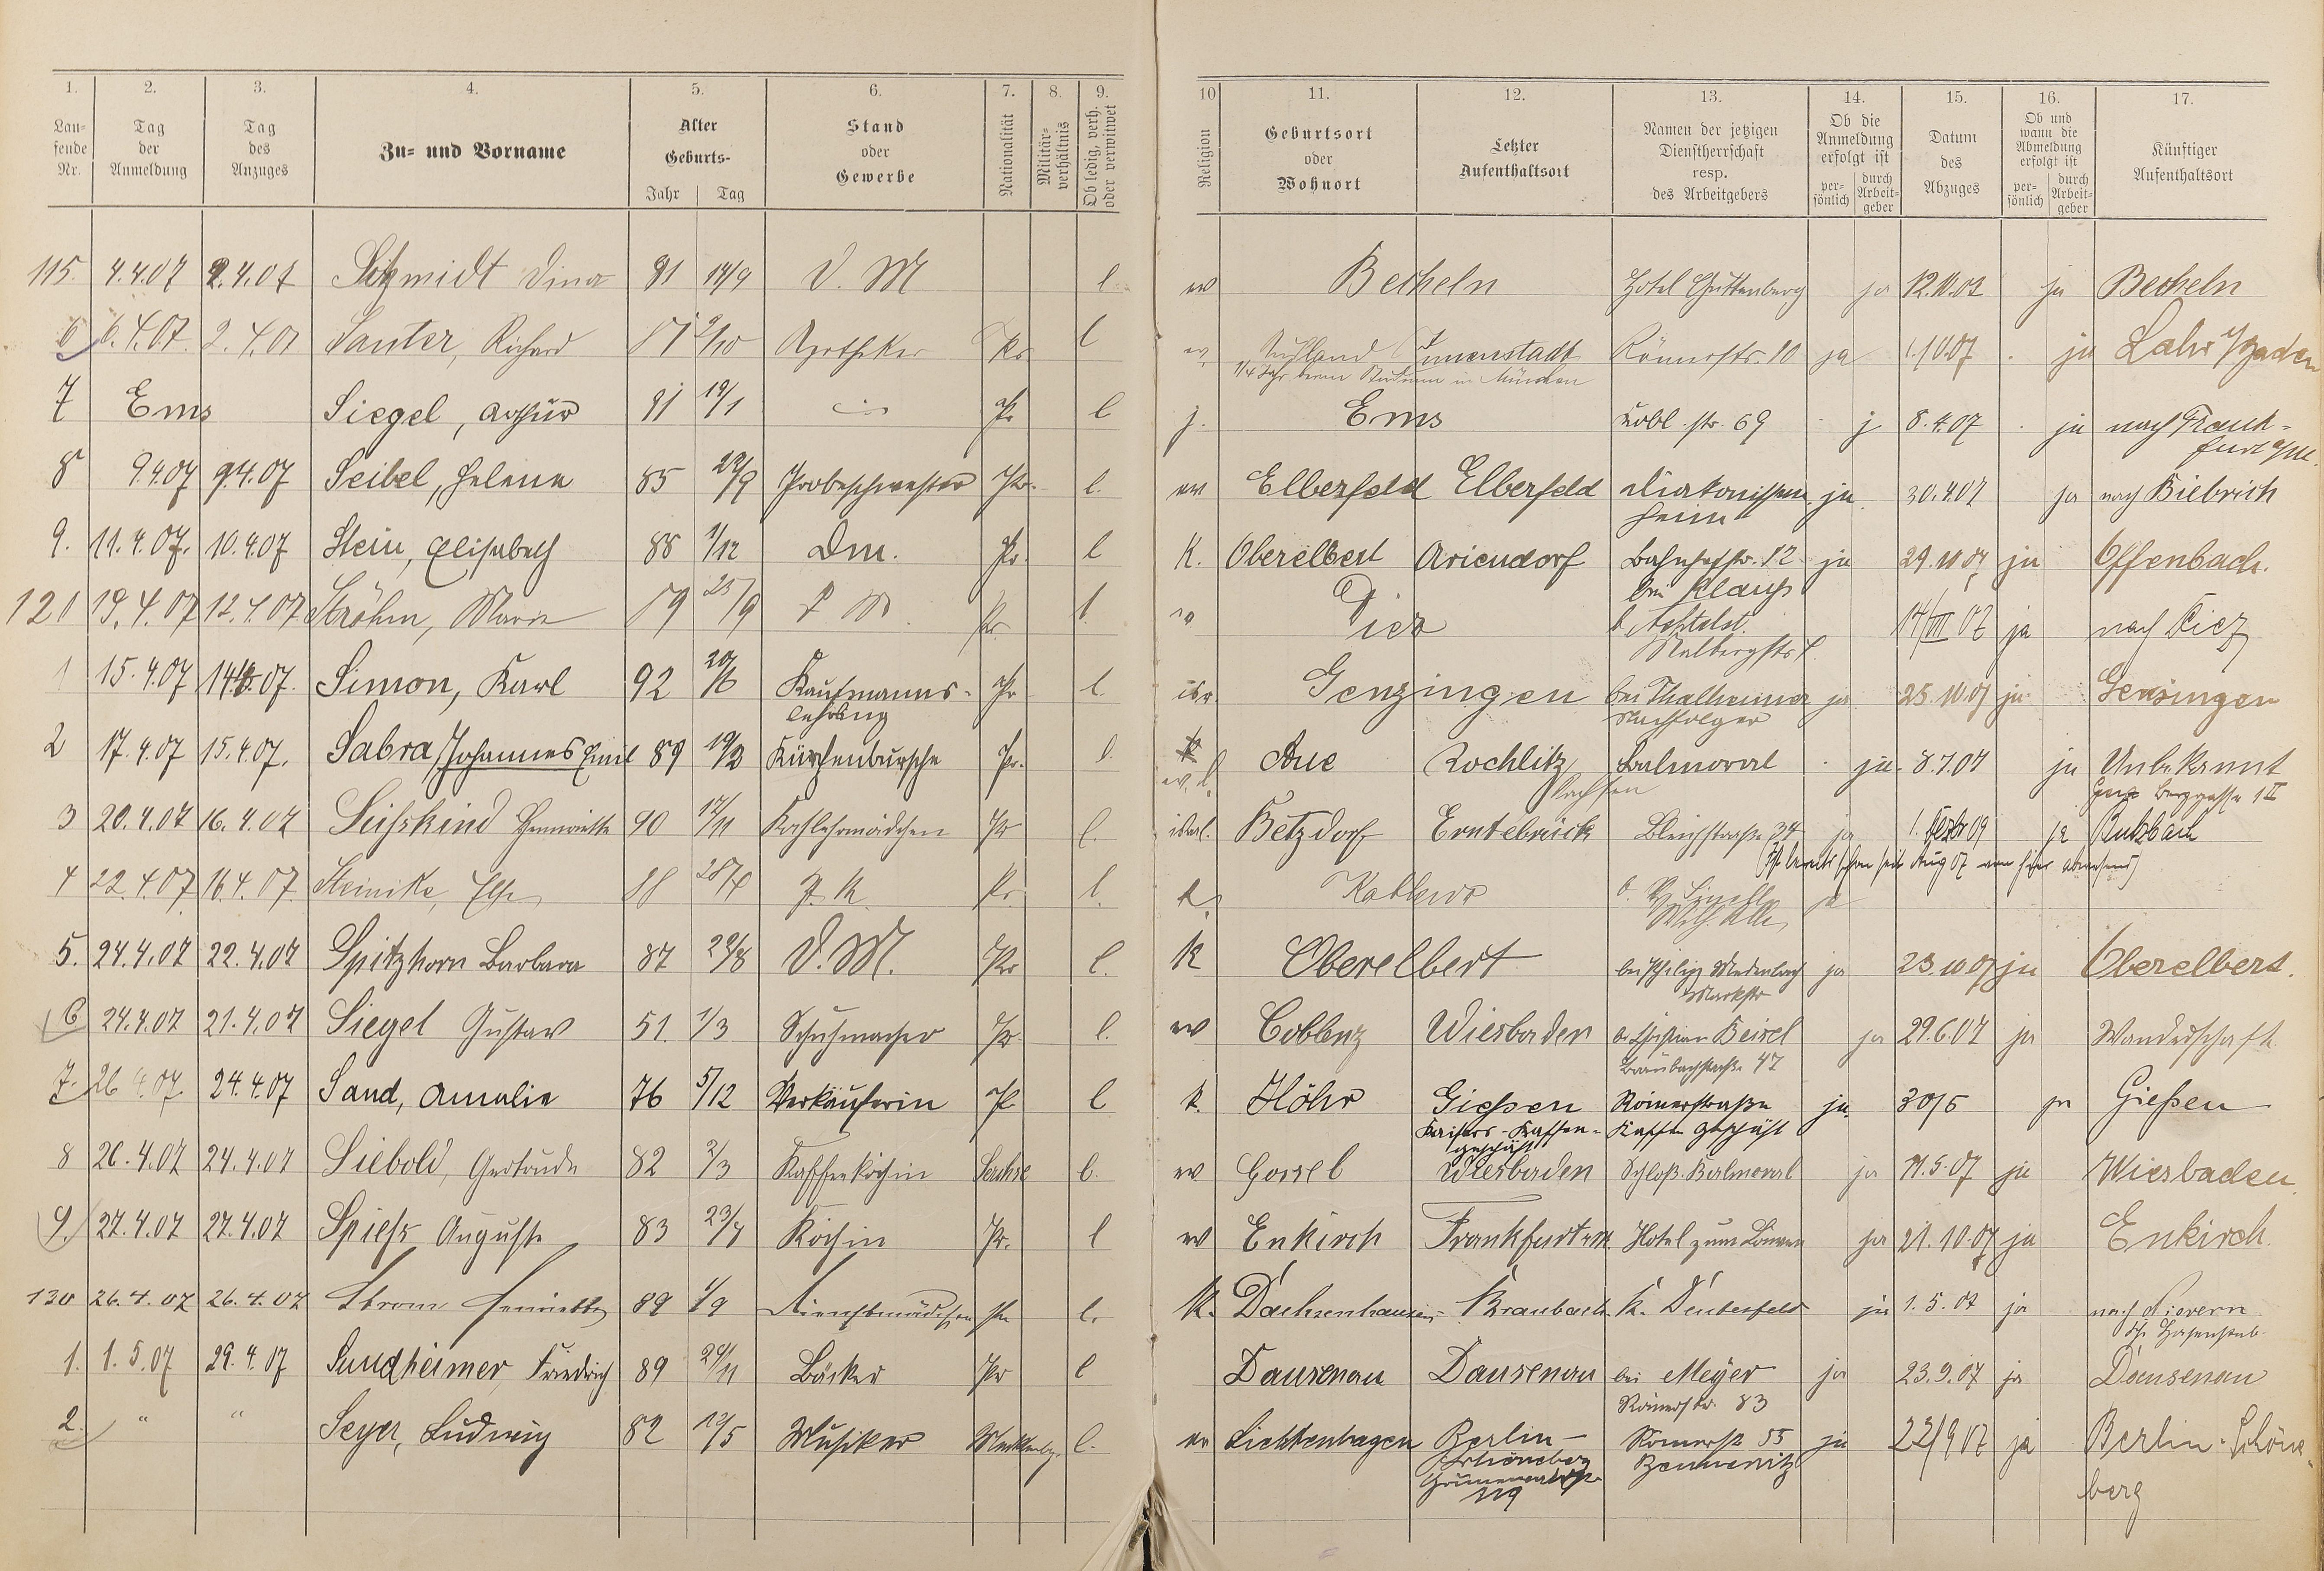 1. 2. 3. 4. 5. 6. 7. 8. 9. 10 11. 12. 13. 14. 15. 16. 17.
Lau-fende Nr. Tag der Anmeldung Tag des Anzuges Zu- und Vorname Alter Geburts- Jahr Tag Stand oder Gewerbe Nationalität Militär-verhältnis Ob ledig, verh. oder verwitwet Religion Geburtsort oder Wohnort Letzter Aufenthaltsort Namen der jetzigen Dienstherrschaft resp. des Arbeitgebers Ob die Anmeldung erfolgt ist per-sönlich durch Arbeit-geber Datum des Abzuges Ob und wann die Abmeldung erfolgt ist per-sönlich durch Arbeit-geber Künftiger Aufenthaltsort
115 4.4.07 2.4.07 Schmidt Dina 81 14/9 D. M l. ev Becheln Hotel Guttenberg ja ja Becheln
6 6.4.07. 2.4.07 Sauter, Richard Apotheker Pr l Römerstr. 10 ja 1.10.07 ja Lahr i/Baden
7 Ems Siegel, Arthur 91 19/1 Pr l j. Ems Cobl. str. 69 j 8.4.07 ja nach Frank-
furt a/M.
8 9.4.07 9.4.07 Seibel, Helene 85 29/9 Probeschwester Pr. l. ev Elberfeld Elberfeld Diakonissen ja 30.4.07 ja nach Biebrich
heim
9. 11.4.07. 10.4.07 Stein, Elisabeth 88 1/12 Dm. Pr. l K. Oberelbert Ariendorf Bahnhofstr. 12 ja 29.10.07 ja Offenbach.
bei Klaus
120 19.4.07 12.4.07 Ströhm, Marie 25/9 D M. Pr l. Diez 14/VII 07 ja nach Diez
Malbergstr.
1 15.4.07 14.4.07. Simon, Karl 92 20/6 Kaufmanns- Pr l isr. Genzingen bei Thalheimer ja 25.10.07 ja Gensingen
lehrling Nachfolger
2 17.4.07 15.4.07. Sabra, Johannes Emil 89 19/3 Küchenbursche Pr. l. Aue Rochlitz Balmoral ja 8.7.07 ja Unbekannt
Sachsen
3 20.4.07 16.4.07 Süsskind Henriette 90 17/11 Kochlehrmädchen Pr l. israel. Betzdorf Erntebrück Bleichstrasse 34 ja ja Butzbach
4 22.4.07 16.4.07. Steinike, Else Pr. l. K. ja
5. 24.4.07 22.4.07 Spitzhorn Barbara 87 22/8 D. M. Pr l. K Oberelbert bei Philipp Medenbach ja 23.10.07 ja Oberelbert.
Marktstr
6 24.4.07 21.4.07 Siegel Gustav 51. 1/3 Schuhmacher Pr l. ev Coblenz Wiesbaden b. Christian Beisel ja 29.6.07 ja Wanderschaft
Braubachstraße 47
7. 26.4.07. 24.4.07 Sand, Amalie 76 5/12 Verkäuferin Pr l k. Höhr Giessen Römerstraße ja 30/5 ja Gießen
Kaisers-Kaffee- Kaffee Geschäft
geschäft
8 26.4.07 24.4.07 Siebold, Gertrude 82 2/3 Kaffeeköchin Sachse l. ev Wiesbaden Schloß-Balmoral ja 11.5.07 ja Wiesbaden
9. 27.4.07 27.4.07 Spiess Auguste 83 Köchin Pr. l ev Enkirch Frankfurt a/M. Hotel zum Löwen ja 21.10.07 ja Enkirch.
130 26.4.07 26.4.07 Strom Henriette 89 1/9 Dienstmädchen Pr l. K. Dachsenhausen Braubach K. Deutesfeld ja 1.5.07 ja nach Nievern
1. 1.5.07 29.4.07 Sundheimer Friedrich 89 29/11 Bäcker Pr l Dausenau Dausenau bei Meyer ja 23.9.07 ja Dausenau
Römerstr. 83
2. " " Seyer, Ludwig 82 19/5 Musiker Mecklenbg. l. ev Lichtenhagen Berlin- Römerstr 55 ja 22/9 07 ja Berlin-Schöne-
Schöneberg
119 berg